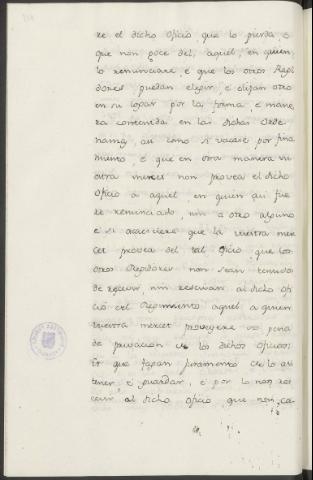 re el dicho Oficio que lo pierda, e
que non goce del, aquel, en quien
lo renunciare, e que los otros Regi
dores puedan elegir, e elijan otro
en su logar por la forma, e mane
ra contenida en las dichas Orde
nanzas, asi como si vacase por fina
miento, e que en otra manera vu
estra merced non provea el dicho
Oficio a aquel, en quien asi fue
re renunciado, nin a otro alguno
e si acaesciere que la vuestra mer
ced provea del tal oficio, que los
otros Regidores non sean tenudos
de recevir, nin resciban al dicho ofi
cio del Regimiento aquel a quien
vuestra merced proveyere so pena
de privacion de los dichos Oficios:
Et que fagan juramento de lo asi
tener, e guardar, e por lo non res
cevir al dicho oficio que non ca-